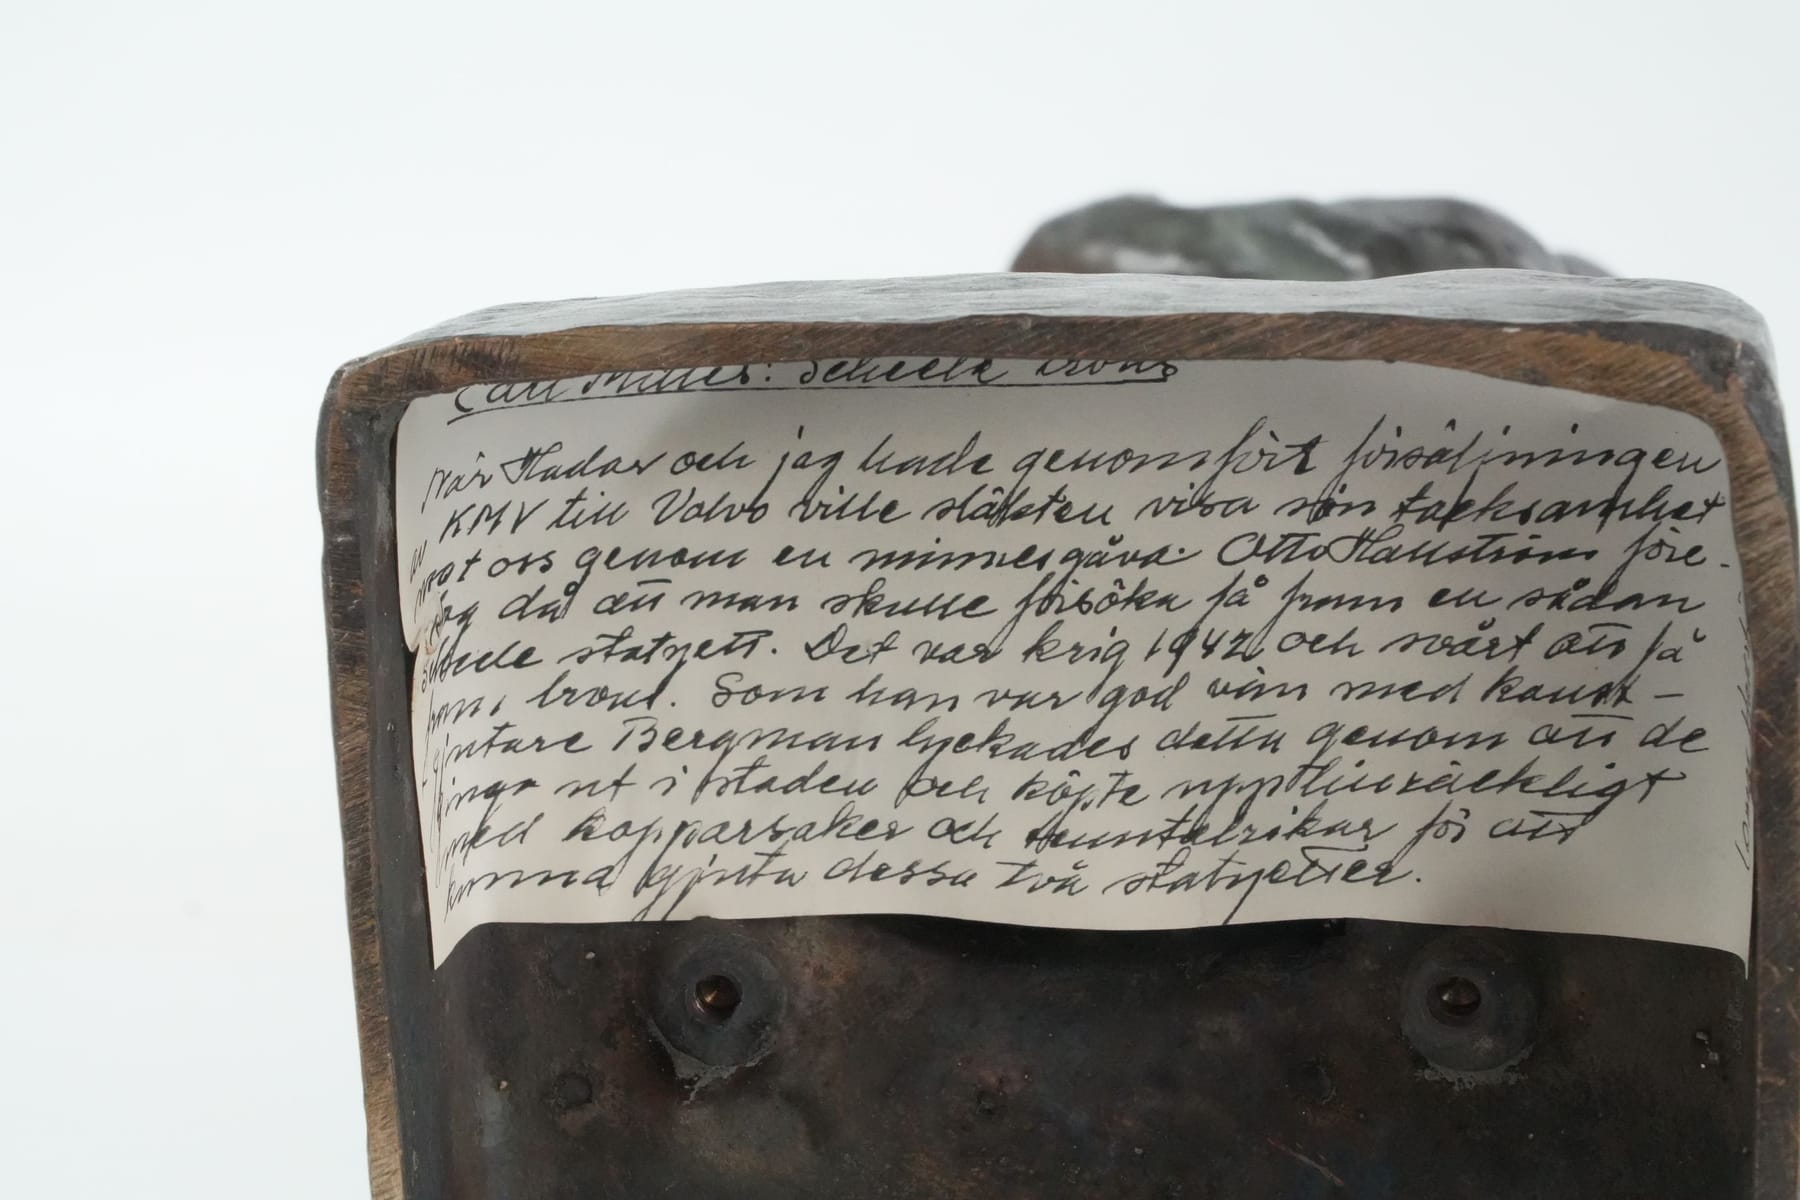 Carl Milles: Scheele brons
När Hadar och jag hade genomfört försäljningen
av KMV till Volvo ville släkten visa sin tacksamhet
mot oss genom en minnesgåva. Otto Hallström före-
slog då att man skulle försöka få fram en sådan
Scheele statyett. Det var krig 1942 och svårt att få
fram brons. Som han var god vän med konst-
gjutare Bergman lyckades detta genom att de
gingo ut i staden och köpte upp tillräckligt
med kopparsaker och tenntalrikar för att
kunna gjuta dessa två statyetter.